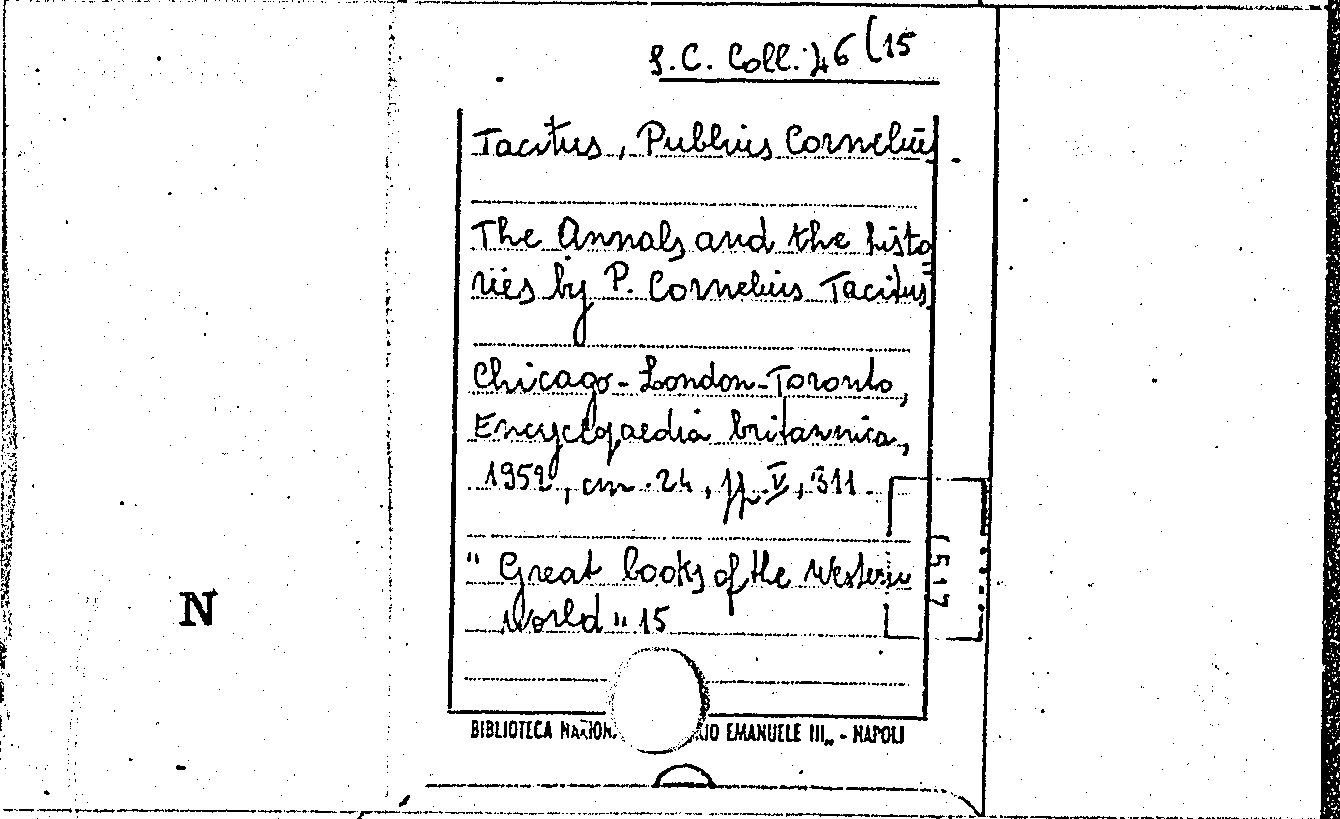 S.C. Coll. 46 (15
Tacitus, Publius Cornelius
The Annals and the histo
ries by P. Cornelius Tacitus
Chicago-London-Toronto,
Encyclopaedia britannica,
1952, cm. 24, pp. V, 311.
" Great books of the Western
World " 15
(517
N
BIBLIOTECA NAZION. IO EMANUELE III„ - NAPOLI